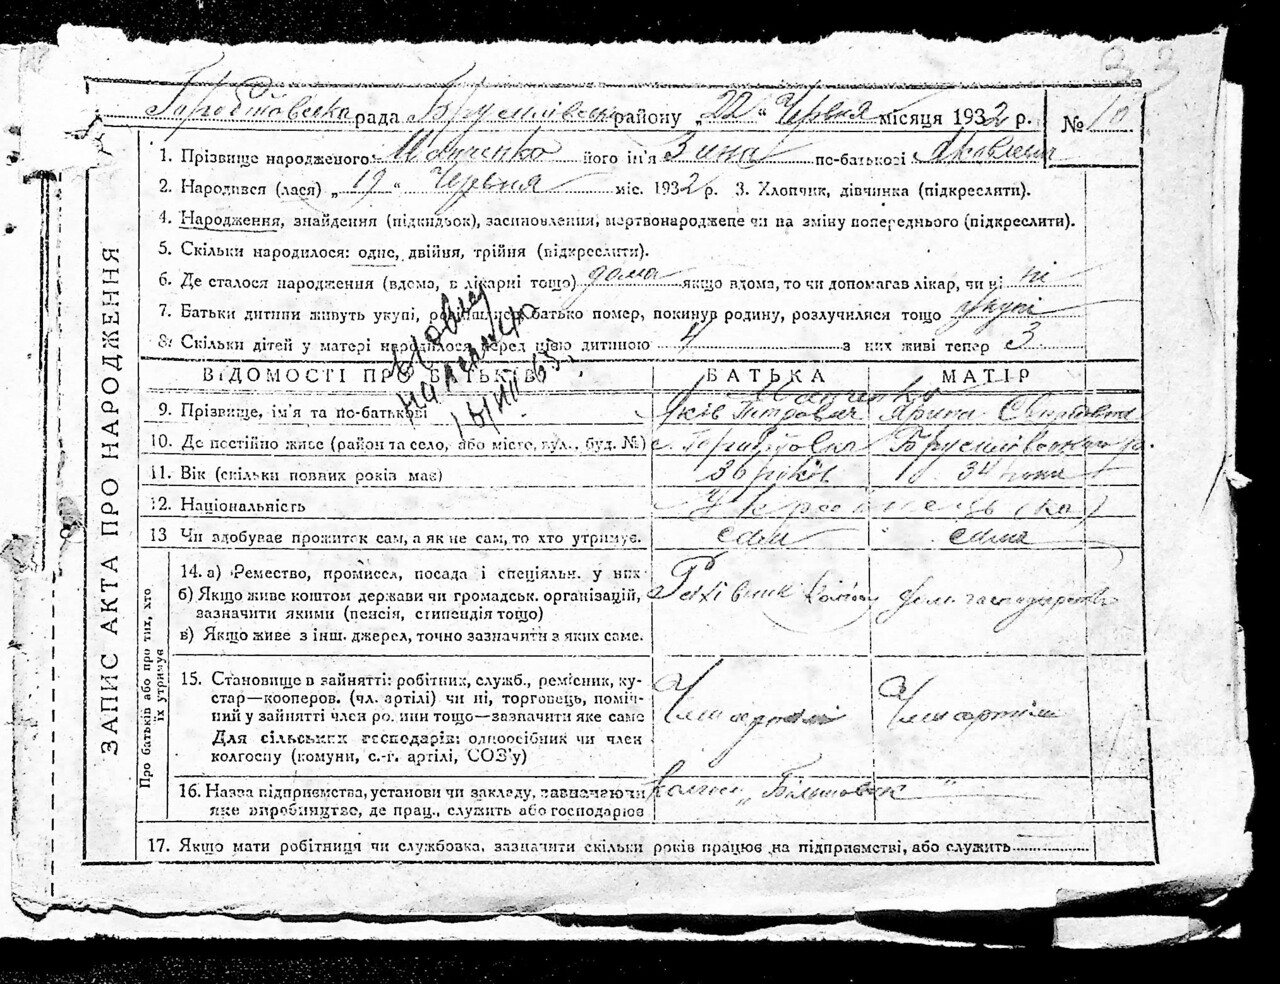 33
рада району „22“ Червня місяця 1932 р. № 10
1. Прізвище народженого його ім'я Зина по-батькові Яковлевна
2. Народився (лася) „19“ Червня міс. 1932 р. 3. Хлопчик, дівчинка (підкреслити).
4. Народження, знайдення (підкидьок), засиновлення, мертвонароджене чи на зміну попереднього (підкреслити).
5. Скільки народилося: одне, двійня, трійня (підкреслити).
6. Де сталося народження (вдома, в лікарні тощо) дома якщо вдома, то чи допомагав лікар, чи ні ні
7. Батьки дитини живуть укупі, розійшлися, батько помер, покинув родину, розлучилися тощо укупі
8. Скільки дітей у матері народилося перед цією дитиною 4 з них живі тепер 3
ВІДОМОСТІ ПРО БАТЬКІВ БАТЬКА МАТІР
9. Прізвище, ім'я та по-батькові Яків Петрович
10. Де постійно живе (район та село, або місто, вул., буд. №)
11. Вік (скільки повних років має) 36 років 34 роки
12. Національність Українець (ка)
13 Чи здобуває прожиток сам, а як не сам, то хто утримує. сам сама
ЗАПИС АКТА ПРО НАРОДЖЕННЯ
Про батьків або про тих, хто їх утримує
14. а) Ремество, промисел, посада і спеціяльн. у них
б) Якщо живе коштом держави чи громадськ. організацій,
зазначити якими (пенсія, стипендія тощо)
в) Якщо живе з інш. джерел, точно зазначити з яких саме.
15. Становище в зайнятті: робітник, служб., ремісник, ку-
стар—кооперов. (чл. артілі) чи ні, торговець, поміч-
ний у зайнятті член родини тощо—зазначити яке саме
Член артілі Член артіли
Для сільських господарів: одноосібник чи член
колгоспу (комуни, с.-г. артілі, СОЗ'у)
16. Назва підприємства, установи чи закладу, зазначаючи
яке виробництво, де прац., служить або господарює
„Більшовик“
17. Якщо мати робітниця чи службовка, зазначити скільки років працює на підприємстві, або служить